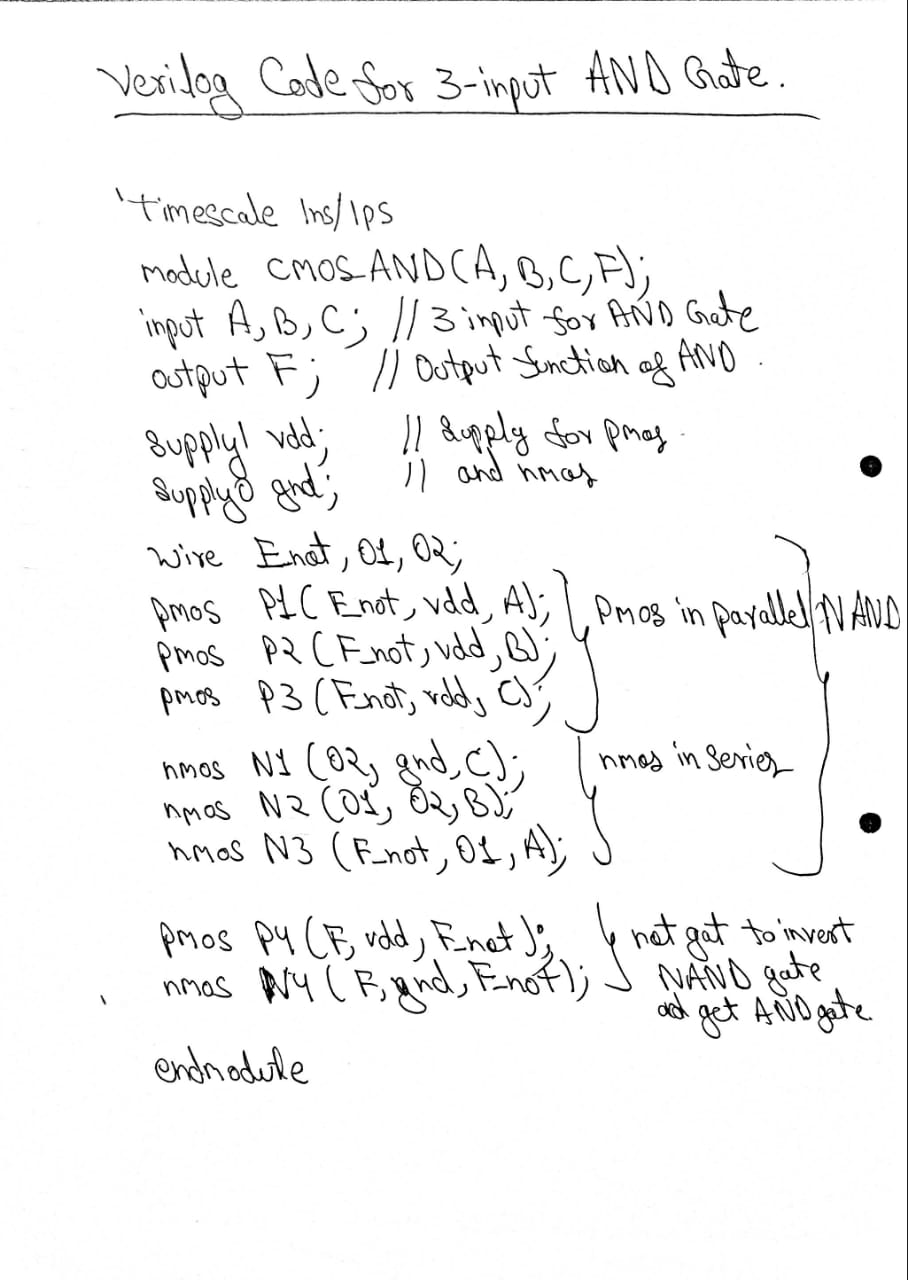 Verilog Code for 3-input AND Gate.
`timescale 1ns/1ps
module CMOS_AND(A, B, C, F);
input A, B, C; // 3 input for AND Gate
output F; // Output function of AND.
supply1 vdd; // Supply for pmos.
supply0 gnd; // and nmos
wire F_not, O1, O2;
pmos P1 (F_not, vdd, A);
pmos P2 (F_not, vdd, B);
pmos P3 (F_not, vdd, C);
Pmos in parallel
NAND
nmos N1 (O2, gnd, C);
nmos N2 (O1, O2, B);
nmos N3 (F_not, O1, A);
nmos in series
pmos P4 (F, vdd, F_not);
nmos N4 (F, gnd, F_not);
not gat to invert
NAND gate
and get AND gate.
endmodule